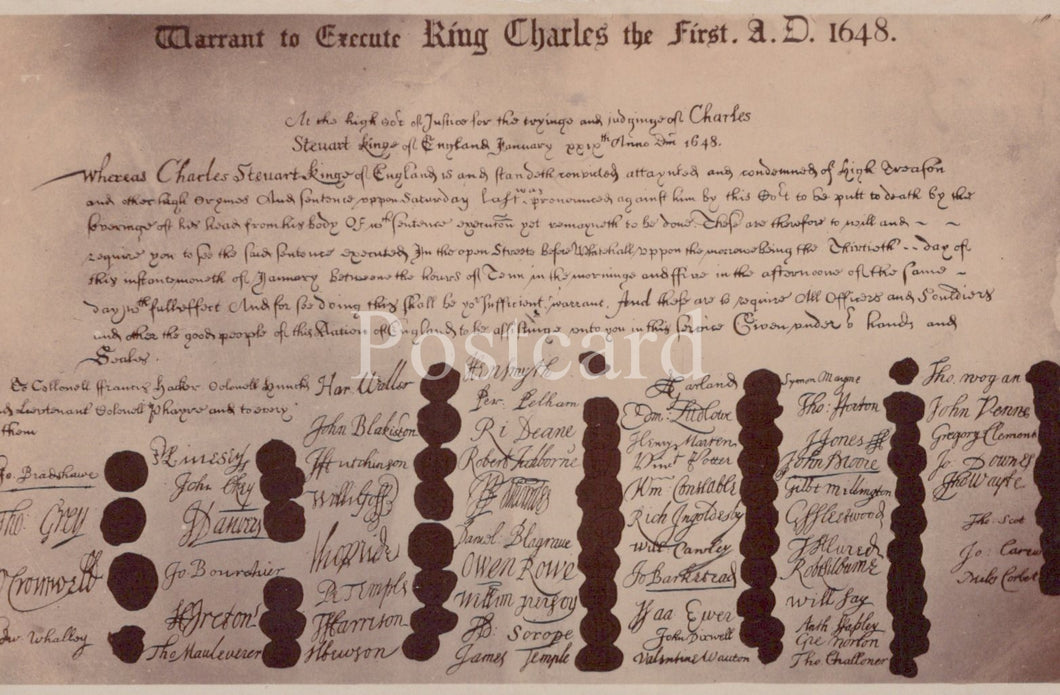 Warrant to Execute King Charles the First. A.D. 1648.
At the high Cort of Justice for the tryinge and judginge of Charles
Steuart Kinge of England January xxixth Anno Dm 1648.
Whereas Charles Steuart Kinge of England is and standeth convicted attaynted and condemned of High Treason
and other high Crymes And sentence uppon Saturday last was pronounced against him by this Cort to be putt to death by the
severinge of his head from his body Of wch sentence execucon yet remayneth to be done These are therefore to will and
require you to see the said sentence executed In the open Streete before Whitehall uppon the morrowe being the Thirtieth day of
this instante moneth of January betweene the hours of Tenn in the morninge and ffive in the afternoone of the same
day wth full effect And for soe doing this shall be yor sufficient warrant. And these are to require All Officers and Souldiers
and other the good people of this Nation of England to be assistinge unto you in this service Given under or hands and
Seales.
Postcard
To Collonell ffrancis Hacker Colonell Huncks
and Lieutenant Colonell Phayre and to every
them
Jo. Bradshawe
Tho: Grey
O Cromwell
Edw Whalley
John Okey
J Danvers
Jo Bourchier
H Ireton
Tho Mauleverer
Har Waller
John Blakiston
J Hutchinson
Willi Goffe
Tho Pride
P Temple
T Harrison
J Hewson
Hen Smyth
Per. Pelham
Ri Deane
Robert Tichborne
Daniel Blagrave
Owen Rowe
William Purefoy
Ad: Scrope
James Temple
A Garland
Edm: Ludlowe
Henry Marten
Vinct Potter
Wm: Constable
Rich Ingoldesby
Will Cawley
Jo Barkstead
Isaa Ewer
John Dixwell
Valentine Wauton
Symon Mayne
Tho: Horton
J Jones
John Moore
Gilbt Millington
G Fleetwood
J Alured
Rob Lilburne
Will Say
Anth Stapley
Gre Norton
Tho Challoner
Tho. Wogan
John Venne
Gregory Clement
Jo Downes
Tho Wayte
Tho: Scot
Jo: Carew
Miles Corbet